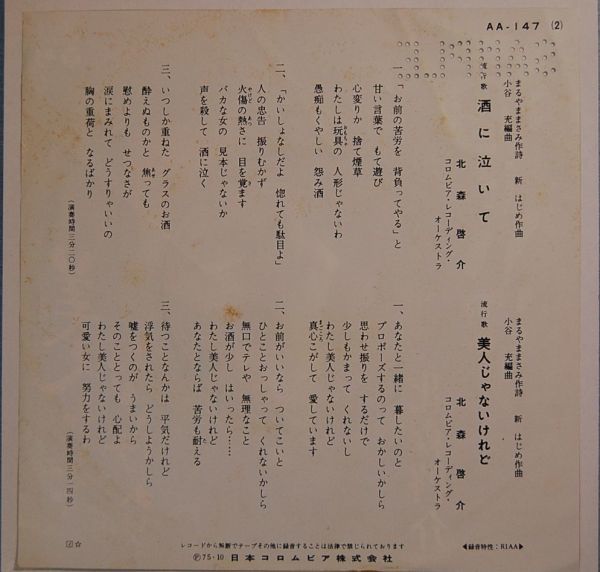 AA-147 (2)
まるやままさみ作詩　新　はじめ作曲
小谷　充編曲
流行歌　酒に泣いて
北森啓介
コロムビア・レコーディング・オーケストラ
一、「お前の苦労を　背負ってやる」と
甘い言葉で　もて遊び
心変りか　捨て煙草
わたしは玩具の　人形じゃないわ
愚痴もくやしい　怨み酒
二、「かいしょなしだよ　惚れても駄目よ」
人の忠告　振りむかず
火傷の熱さに　目を覚ます
バカな女の　見本じゃないか
声を殺して　酒に泣く
三、いつしか重ねた　グラスのお酒
酔えぬものかと　焦っても
慰めよりも　せつなさが
涙にまみれて　どうすりゃいいの
胸の重荷と　なるばかり
(演奏時間三分二〇秒)
まるやままさみ作詩　新　はじめ作曲
小谷　充編曲
流行歌　美人じゃないけれど
北森啓介
コロムビア・レコーディング・オーケストラ
一、あなたと一緒に　暮したいのと
プロポーズするのって　おかしいかしら
思わせ振りを　するだけで
少しもかまって　くれないし
わたし美人じゃないけれど
真心こがして　愛しています
二、お前がいいなら　ついてこいと
ひとことおっしゃって　くれないかしら
無口でテレや　無理なこと
お酒が少し　はいったら……
わたし美人じゃないけれど
あなたとならば　苦労も耐える
三、待つことなんかは　平気だけれど
浮気をされたら　どうしようかしら
嘘をつくのが　うまいから
そのこととっても　心配よ
わたし美人じゃないけれど
可愛い女に　努力をするわ
(演奏時間三分一四秒)
レコードから無断でテープその他に録音することは法律で禁じられております
Ⓟ75・10 日本コロムビア株式会社
◀録音特性：RIAA▶